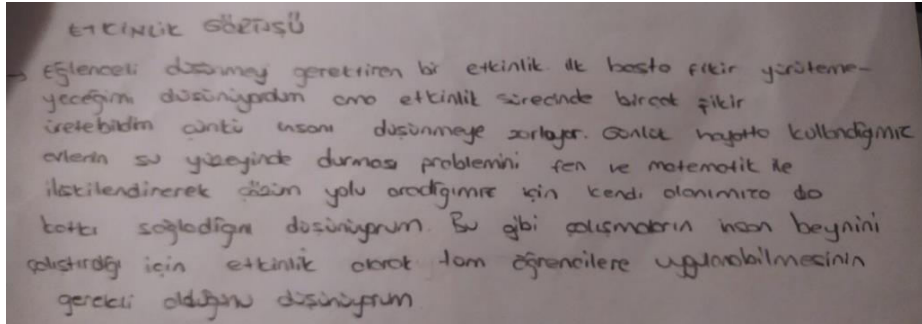 ETKİNLİK GÖRÜŞÜ
→ Eğlenceli düşünmeyi gerektiren bir etkinlik ilk başta fikir yürüteme-
yeceğimi düşünüyordum ama etkinlik sürecinde birçok fikir
üretebildim çünkü insanı düşünmeye zorluyor. Günlük hayatta kullandığımız
evlerin su yüzeyinde durması problemini fen ve matematik ile
ilişkilendirerek çözüm yolu aradığımız için kendi alanımıza da
katkı sağladığını düşünüyorum. Bu gibi çalışmaların insan beynini
çalıştırdığı için etkinlik olarak tam öğrencilere uygulanabilmesinin
gerekli olduğunu düşünüyorum